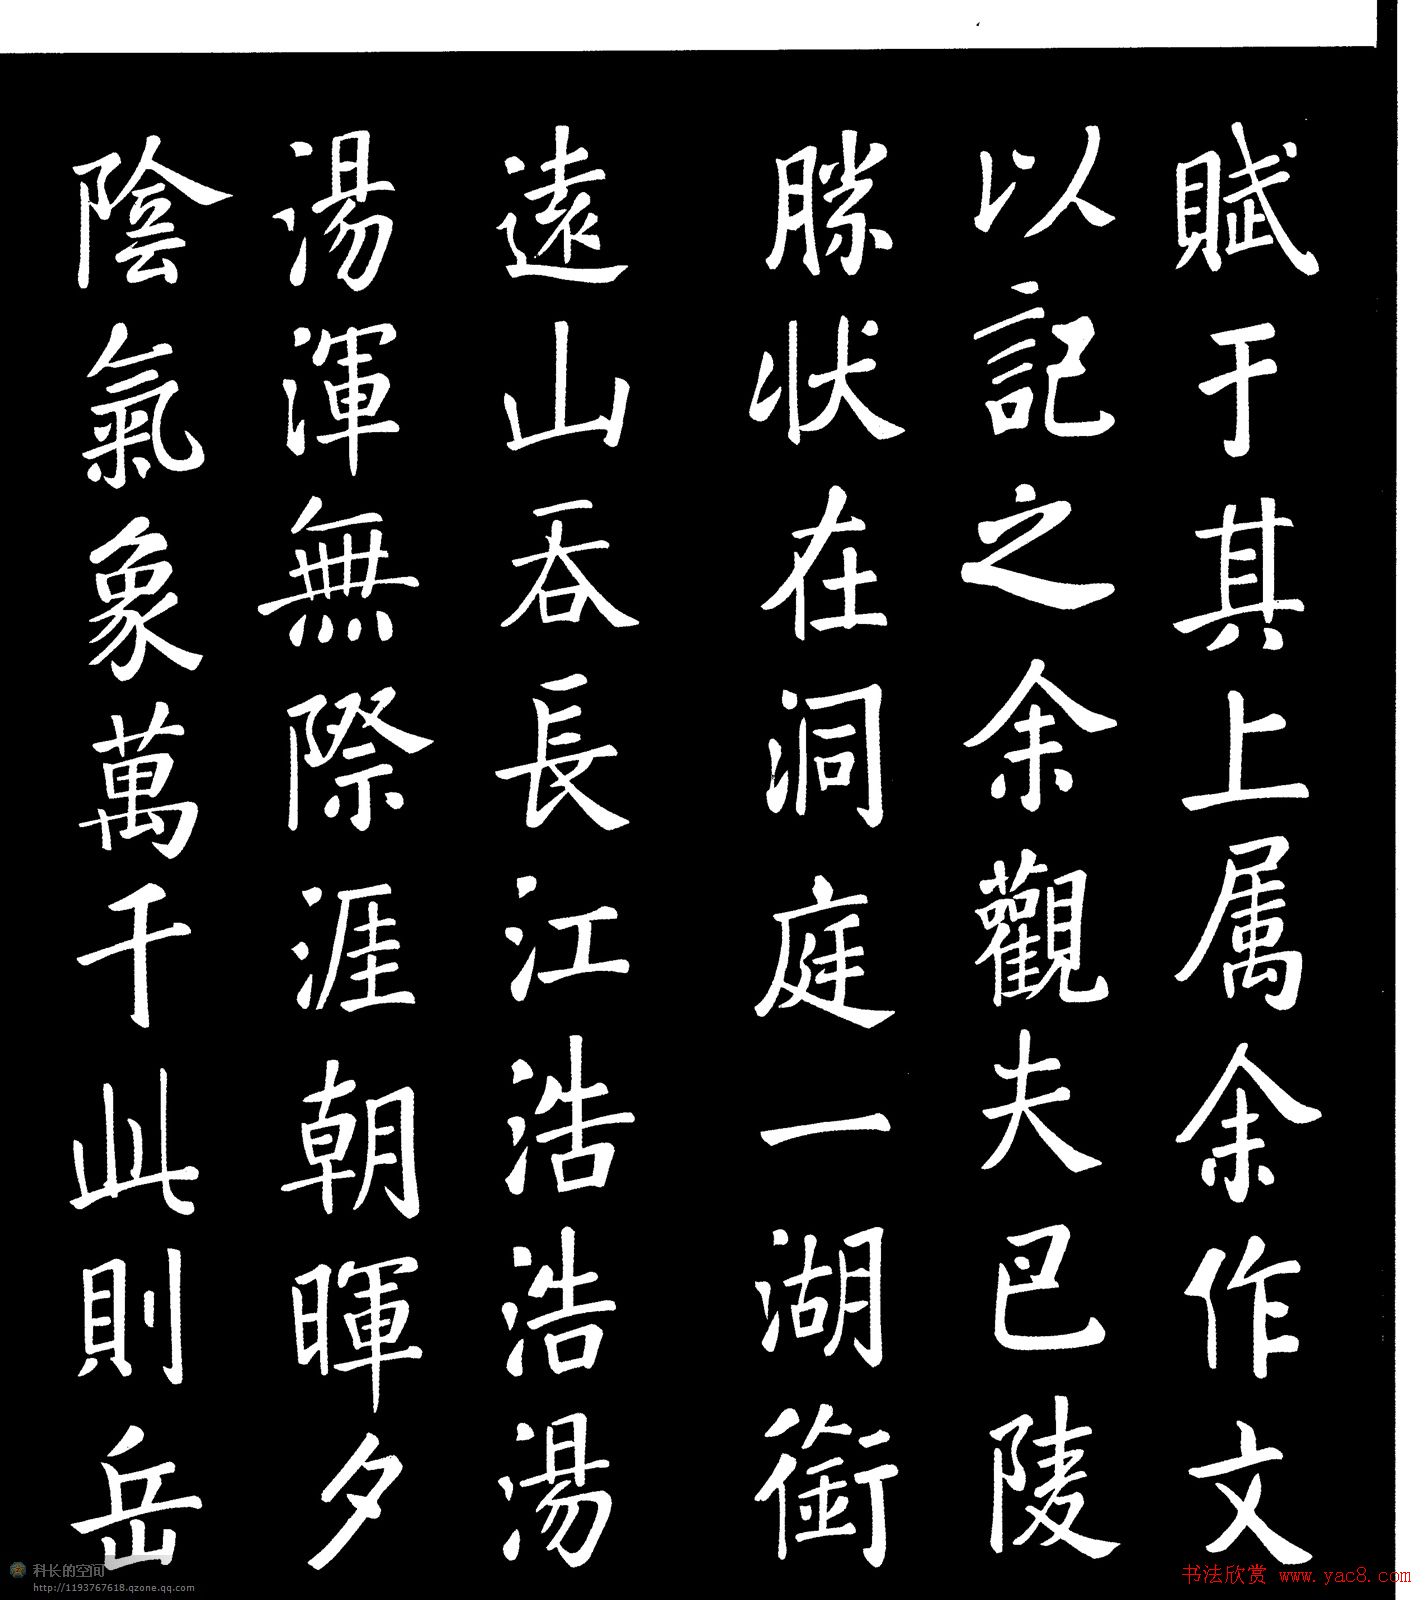 賦于其上属余作文
以記之余觀夫巴陵
勝状在洞庭一湖銜
遠山吞長江浩浩湯
湯渾無際涯朝暉夕
陰氣象萬千此則岳
科长的空间
http://1193767618.qzone.qq.com
书法欣赏 www.yac8.com